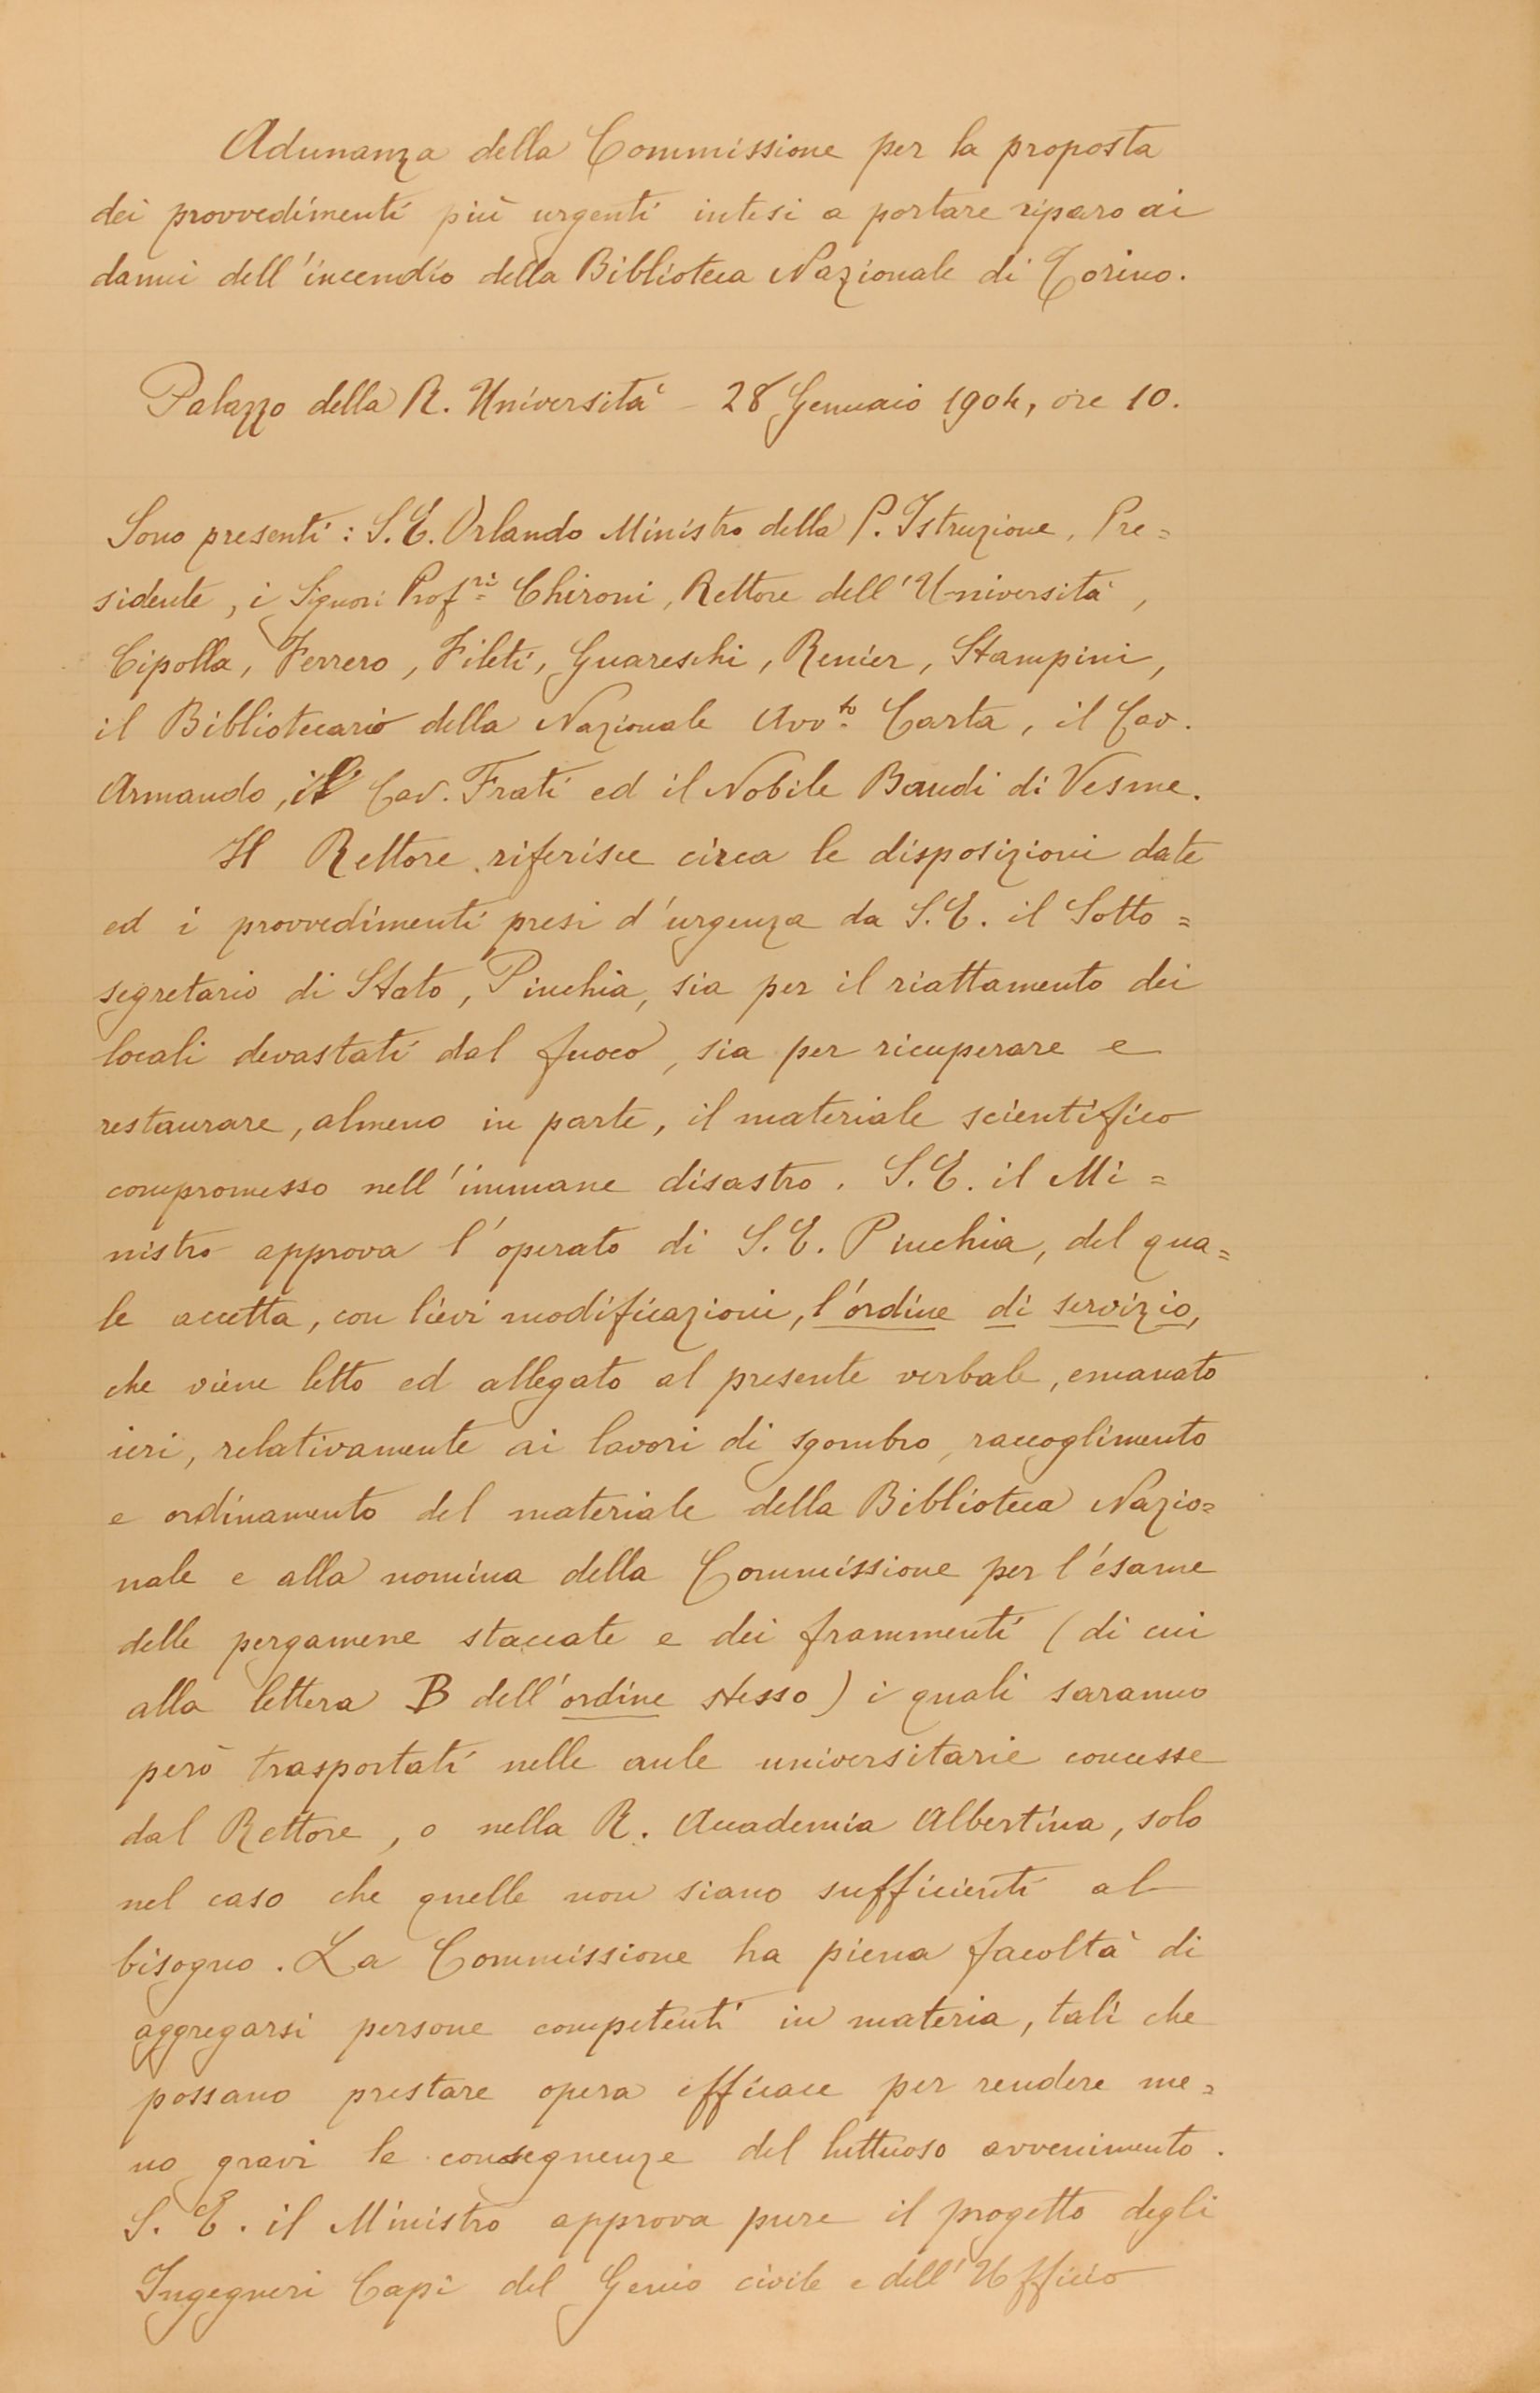 Adunanza della Commissione per la proposta
dei provvedimenti più urgenti intesi a portare riparo ai
danni dell'incendio della Biblioteca Nazionale di Torino.
Palazzo della R. Università - 28 Gennaio 1904, ore 10.
Sono presenti: S. E. Orlando Ministro della P. Istruzione, Pre=
sidente, i Signori Prof.ri Chironi, Rettore dell'Università,
Cipolla, Ferrero, Fileti, Guareschi, Renier, Stampini,
il Bibliotecario della Nazionale Avv.to Carta, il Cav.
Armando, il Cav. Frati ed il Nobile Baudi di Vesme.
Il Rettore riferisce circa le disposizioni date
ed i provvedimenti presi d'urgenza da S. E. il Sotto=
segretario di Stato, Pinchia, sia per il riattamento dei
locali devastati dal fuoco, sia per ricuperare e
restaurare, almeno in parte, il materiale scientifico
compromesso nell'immane disastro. S. E. il Mi=
nistro approva l'operato di S. E. Pinchia, del qua=
le accetta, con lievi modificazioni, l'ordine di servizio,
che viene letto ed allegato al presente verbale, emanato
ieri, relativamente ai lavori di sgombro, raccoglimento
e ordinamento del materiale della Biblioteca Nazio=
nale e alla nomina della Commissione per l'esame
delle pergamene staccate e dei frammenti (di cui
alla lettera B dell'ordine stesso) i quali saranno
però trasportati nelle aule universitarie concesse
dal Rettore, o nella R. Accademia Albertina, solo
nel caso che quelle non siano sufficienti al
bisogno. La Commissione ha piena facoltà di
aggregarsi persone competenti in materia, tali che
possano prestare opera efficace per rendere me=
no gravi le conseguenze del luttuoso avvenimento.
S. E. il Ministro approva pure il progetto degli
Ingegneri Capi del Genio civile e dell'Ufficio